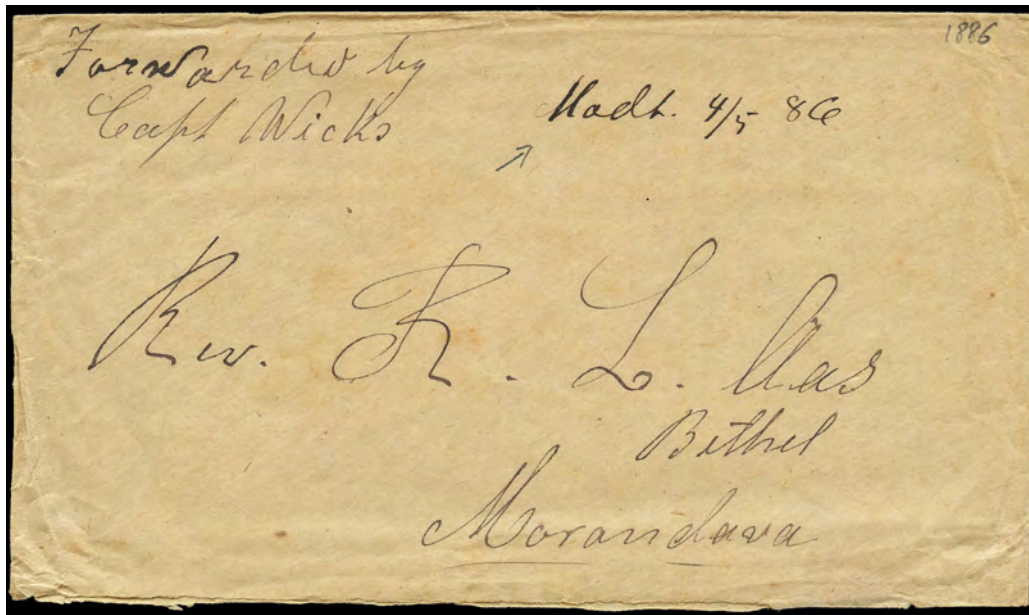 1886
Forwarded by
Capt Wicks
Modt. 4/5 86
Rev. L. Aas
Bethel
Morandava